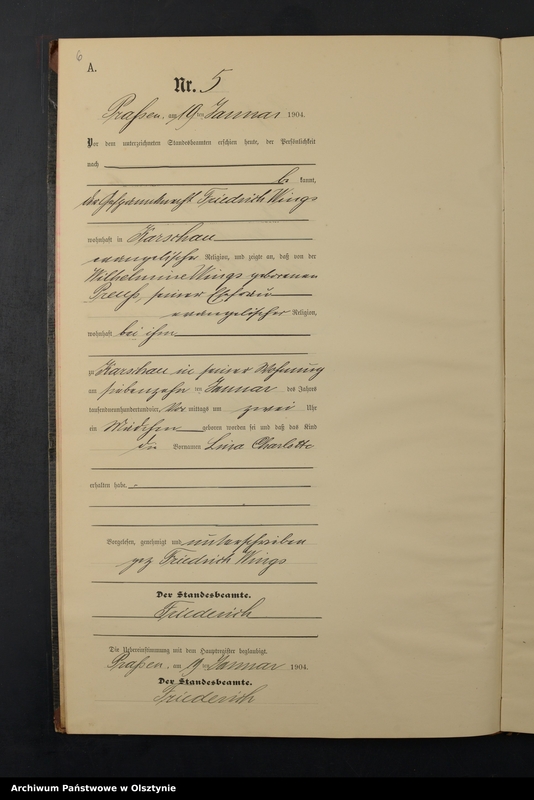 6
A.
Nr. 5
Praßen, am 19 ten Januar 1904.
Vor dem unterzeichneten Standesbeamten erschien heute, der Persönlichkeit
nach
be kannt,
der Gespannknecht Friedrich Wings
wohnhaft in Karschau
evangelischer Religion, und zeigte an, daß von der
Wilhelmine Wings geborenen
Preuß, seiner Ehefrau
evangelischer Religion,
wohnhaft bei ihm
zu Karschau in seiner Wohnung
am siebenzehn ten Januar des Jahres
tausendneunhundertundvier, Vor mittags um zwei Uhr
ein Mädchen geboren worden sei und daß das Kind
die Vornamen Lina Charlotte
erhalten habe.
Vorgelesen, genehmigt und unterschrieben
gez Friedrich Wings
Der Standesbeamte.
Friederich
Die Uebereinstimmung mit dem Hauptregister beglaubigt.
Praßen, am 19 ten Januar 1904.
Der Standesbeamte.
Friederich
Archiwum Państwowe w Olsztynie